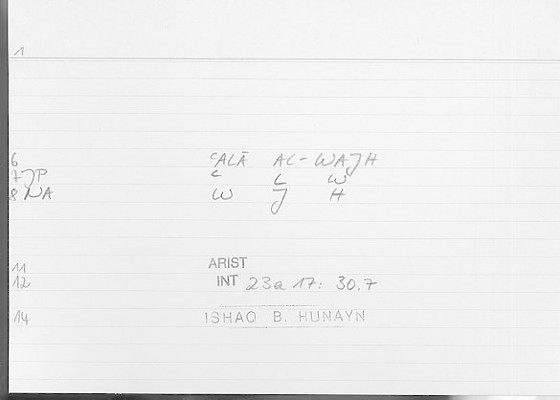 1
6 ʿALĀ AL-WAJH
7 JP ʿ L W
8 NA W J H
11 ARIST
12 INT 23a 17: 30.7
14 ISHAQ B. HUNAYN